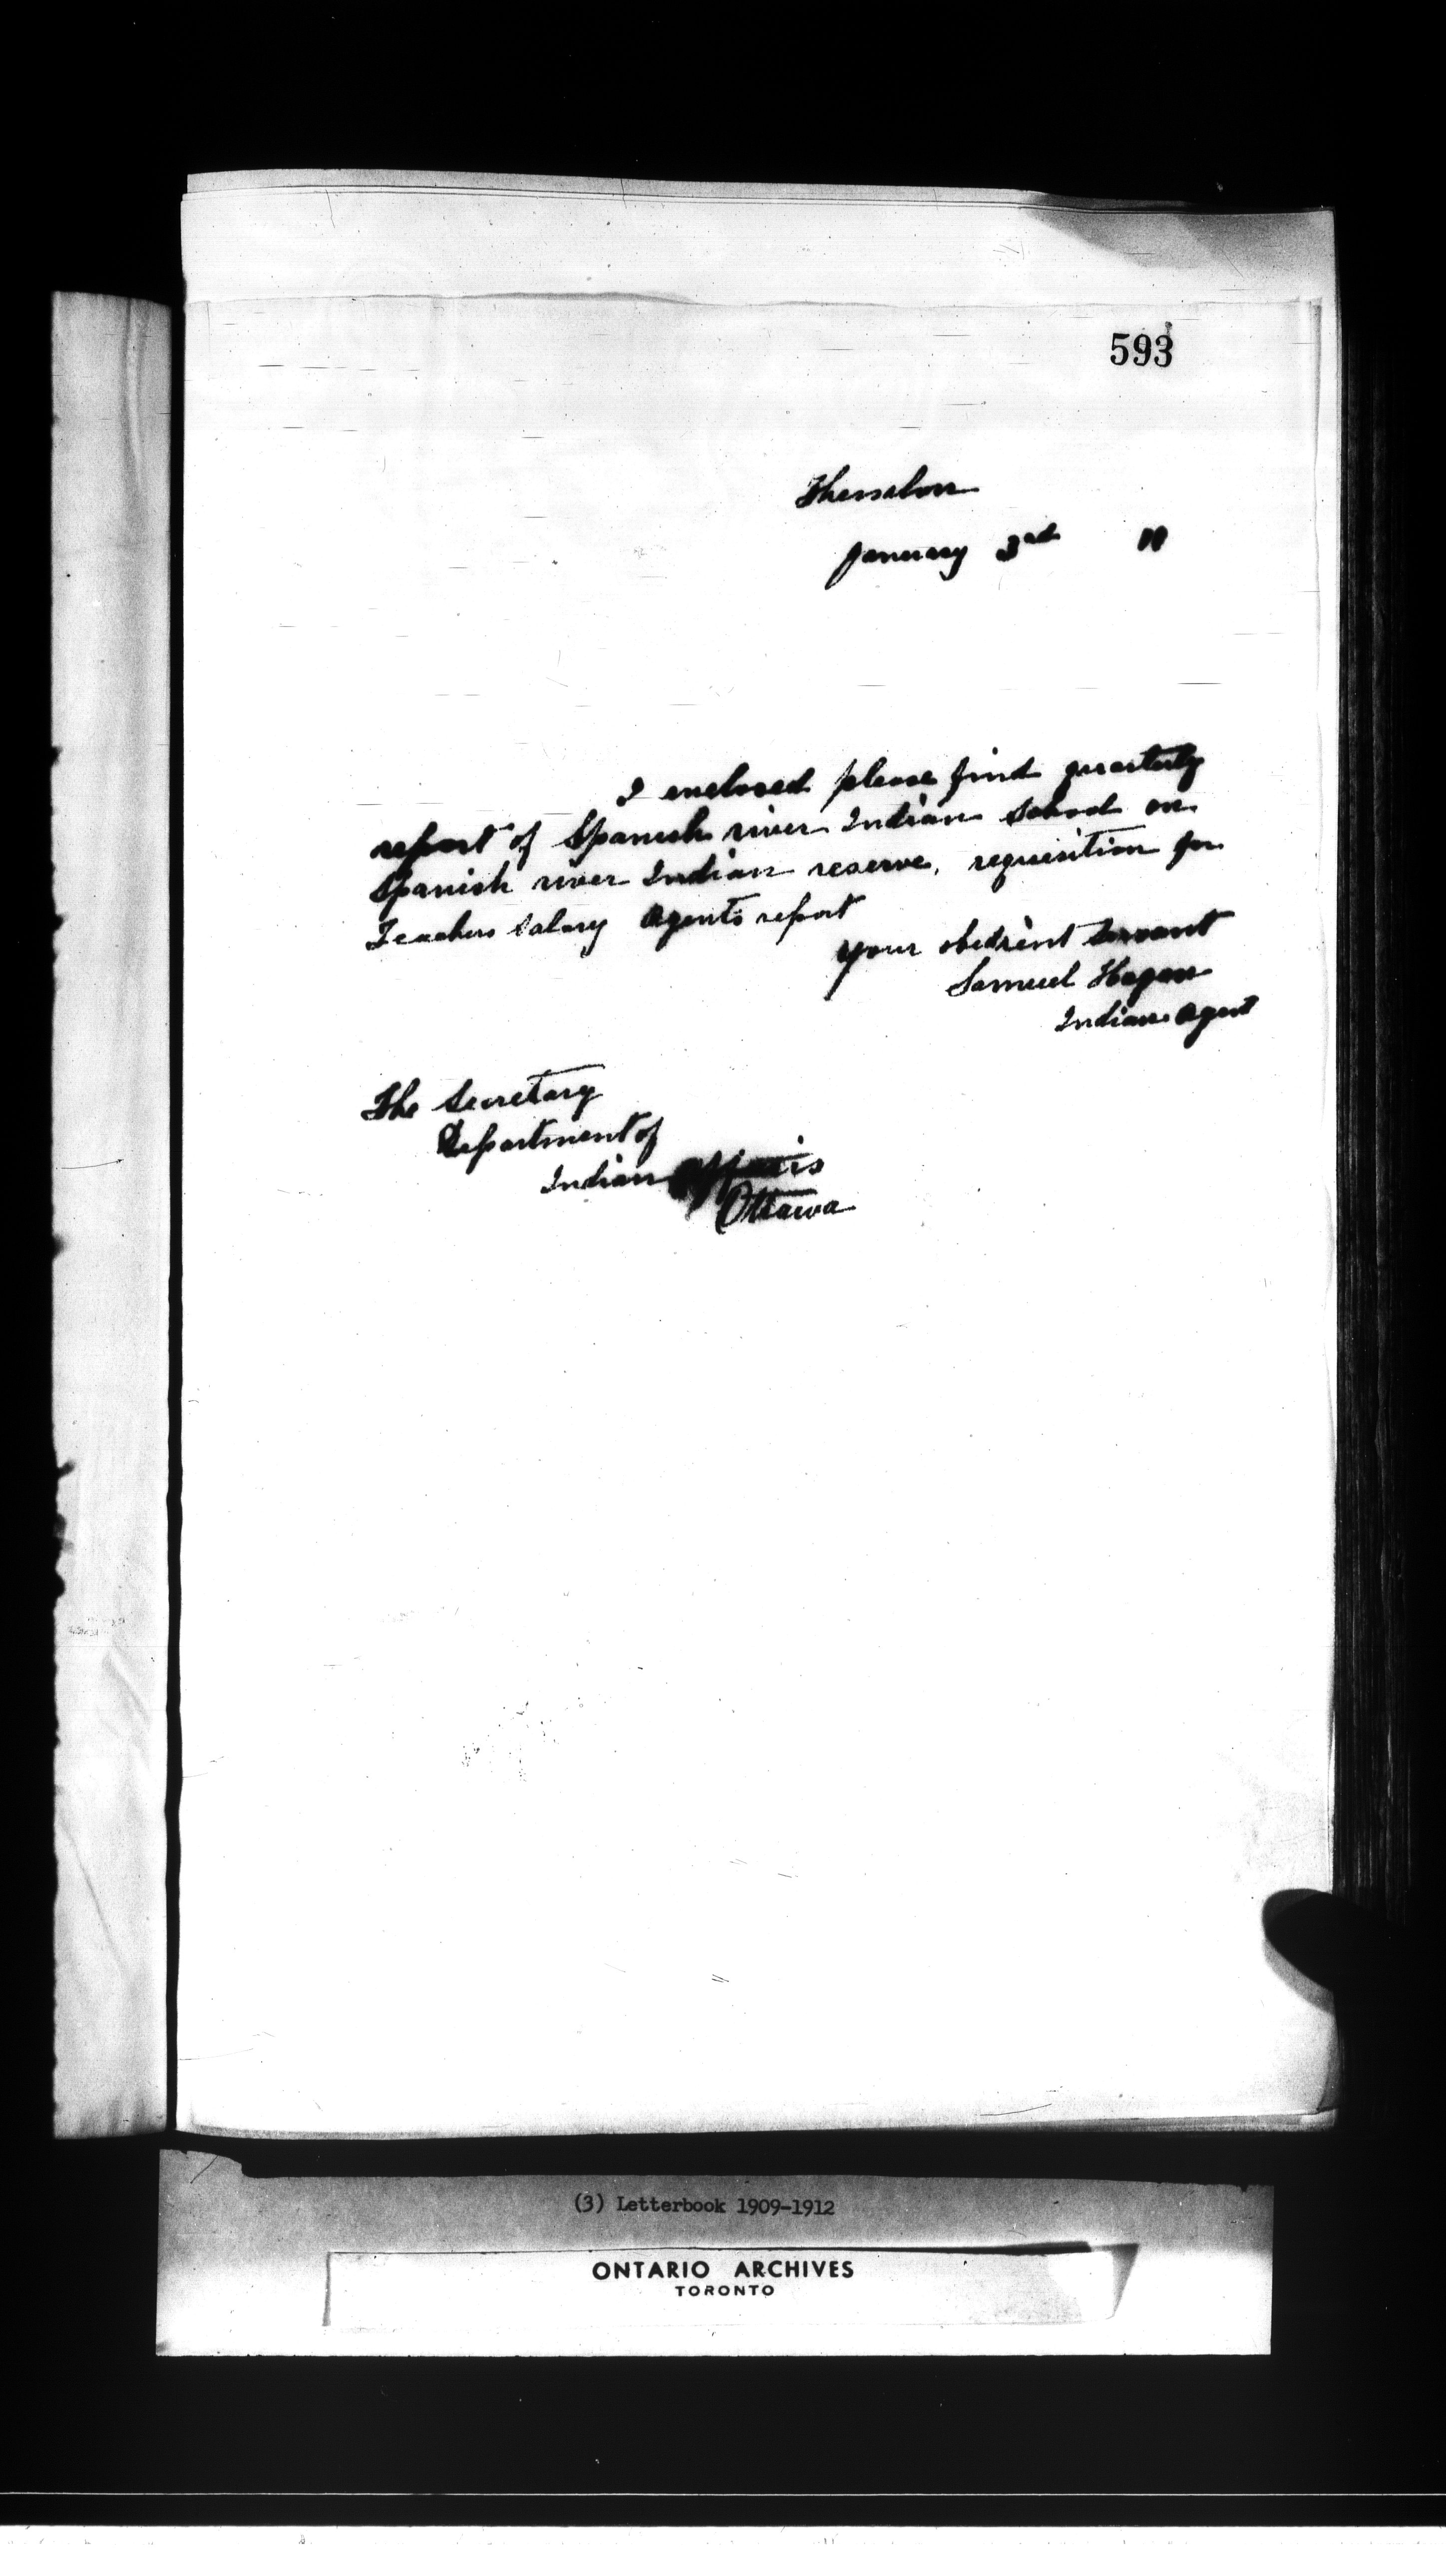 593
Thessalon
January 3rd 11
I enclosed please find quarterly
report of Spanish river Indian School on
Spanish river Indian reserve, requisition for
Teachers Salary Agents report
your obedient Servant
Samuel Hagan
Indian Agent
The Secretary
Department of
Indian Affairs
Ottawa
(3) Letterbook 1909-1912
ONTARIO ARCHIVES
TORONTO